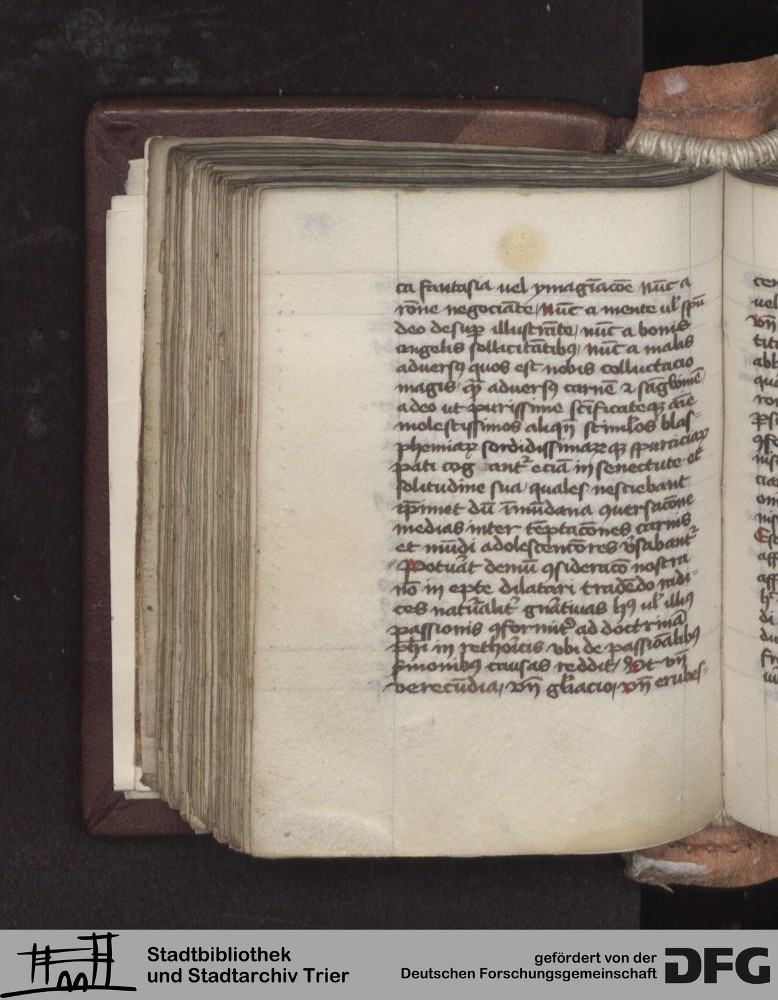 ca fantasia uel ymagīacōe nūc a
rōne negociāte / nūc a mente ul' spū
deo desup illustrāte / nūc a bonis
angelis sollicitātibꝰ / nūc a malis
adversꝰ quos est nobis colluctacio
magis qꝫ adversꝰ carnē ⁊ sāg
adeo ut purissime scīficateqꝫ aīe
molestissimos aliqn̄ stimlos blas-
phemiaꝝ sordidissimaꝝqꝫ spurciciaꝝ
pati cog ant eciā in senectute et
solitudine sua quales nesciebant
dū mūdana ꝯversacōne
medias inter tēptacōnes carnis
et mūdi adolescenciores v̄sabant᷑
Potuāt demū ꝯsideracō nostra
nō in epte dilatari tradēdo radi-
ces natūalit᷑ gn̄atiuas hꝰ ul' illiꝰ
passionis ꝯformit᷑ ad doctrinā
ph̄i in rethoricis vbi de passiōalibꝰ
causas reddit / Ut vn̄
verecūdia / vn̄ gl̄iacio / vn̄ erubes-
Stadtbibliothek
und Stadtarchiv Trier
gefördert von der
Deutschen Forschungsgemeinschaft
DFG